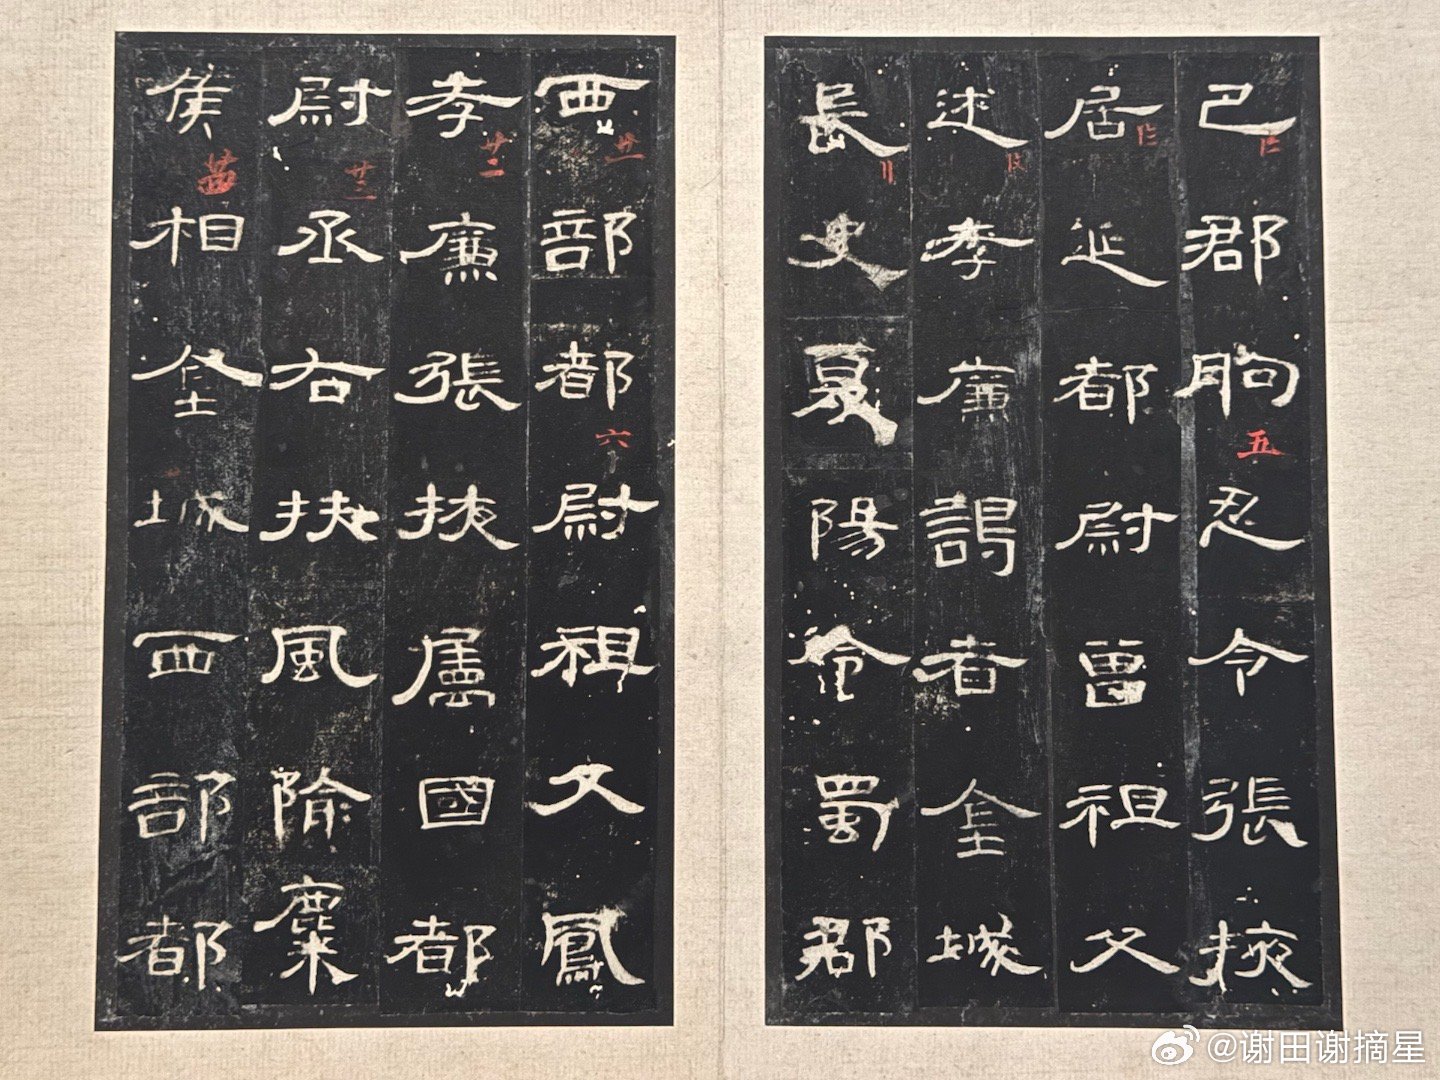 巴郡朐忍令張掖
居延都尉曾祖父
述孝廉謁者金城
長史夏陽令蜀郡
五
西部都尉祖父鳳
孝廉張掖屬國都
尉丞右扶風隃麋
侯相金城西部都
廿二
廿三
六
@谢田谢摘星